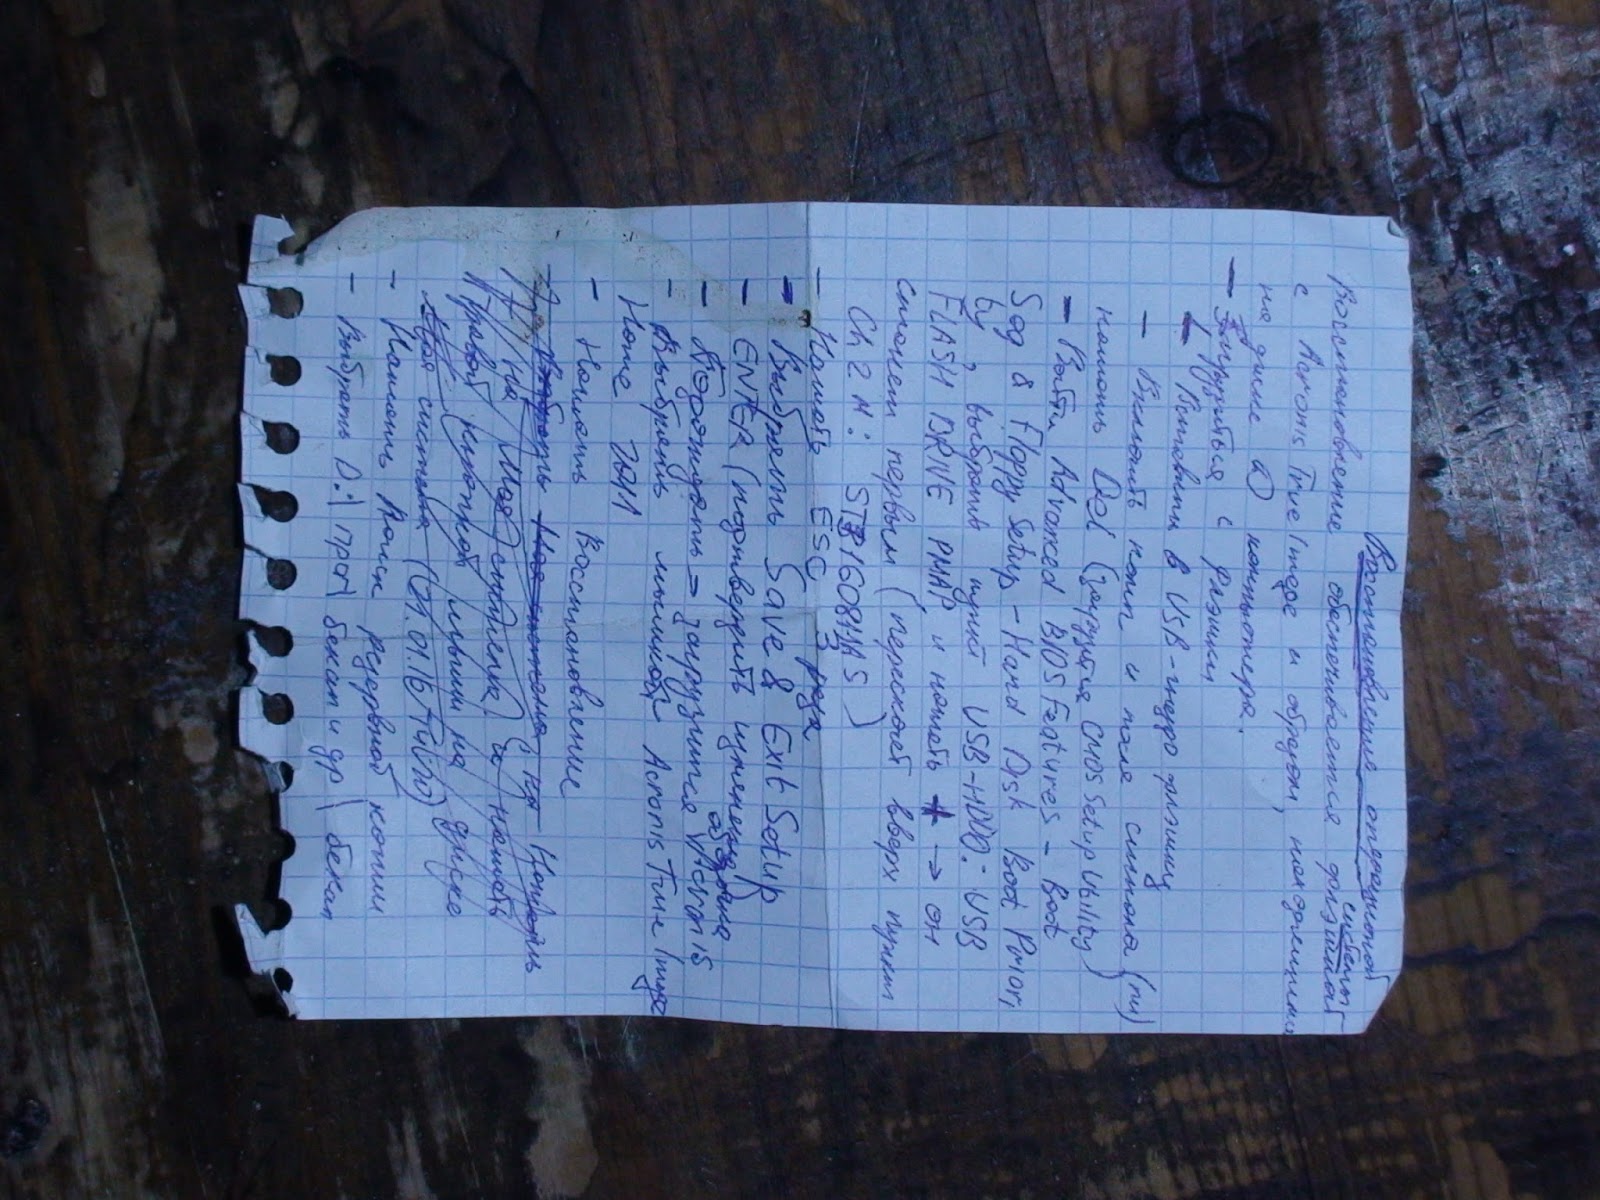 Восстановление операционной
системы
Восстановление обеспечивается флэшкой
с Acronis True Image и образом, находящимся
на диске D компьютера.
- Загрузиться с флэшки
- Вставить в USB-гнездо флэшку
- Включить комп и после сигнала (пи)
нажать Del (загрузится CMOS Setup Utility)
- Войти Advanced BIOS Features - Boot
Seq & Floppy Setup - Hard Disk Boot Prior,
ty, выбрать пункт USB-HDD: USB
FLASH DRIVE PMAP и нажать + → он
станет первым (перескочет вверх пункт
Ch 2 M: ST3160811AS)
- Нажать ESC 3 раза
- Выбрать Save & Exit Setup
- ENTER (подтвердить изменения)
- Подождать → загрузится Acronis
- Выбрать мышкой Acronis True Image
Home 2011
- Нажать Восстановление
- на
на и нажать
правой кнопкой мыши на диске
система (29.01.16
- Нажать Поиск резервной копии
- Выбрать D:\ прог\ бекап и др\ бекап